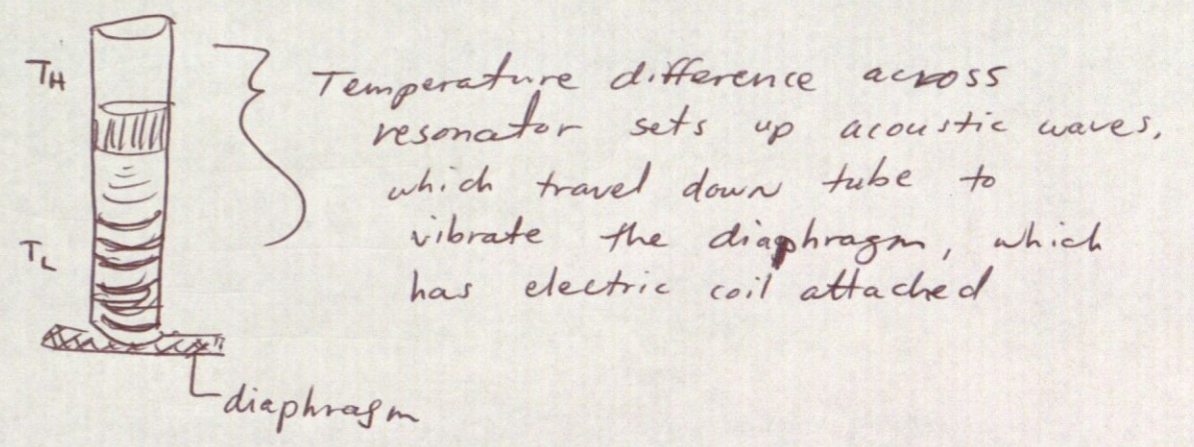 T_H
Temperature difference across
resonator sets up acoustic waves,
which travel down tube to
vibrate the diaphragm, which
has electric coil attached
T_L
diaphragm